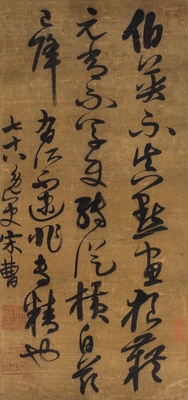 伯英不真點畫狼藉
元常不草使轉縱橫自茲
已降有所不逮非專精也
七十八叟宋曹